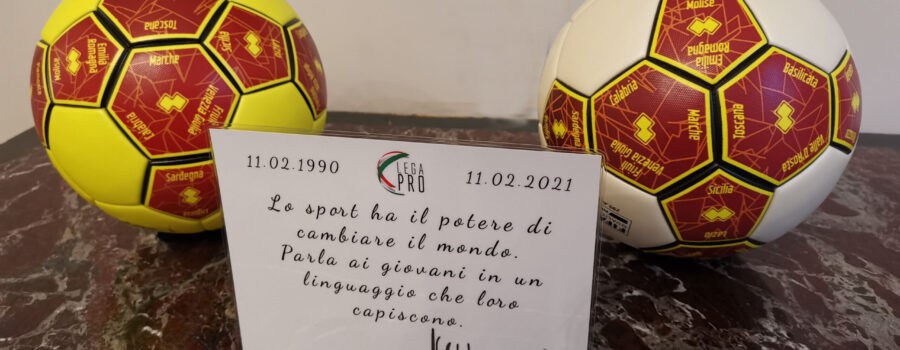 Toscana
Emilia
Romagna
Marche
Lazio
Friuli
Venezia Giulia
Calabria
Sardegna
Molise
Emilia
Romagna
Calabria
Friuli
Venezia Giulia
Marche
Toscana
Basilicata
Valle D'Aosta
Sicilia
Lazio
11.02.1990
LEGA
PRO
11.02.2021
Lo sport ha il potere di
cambiare il mondo.
Parla ai giovani in un
linguaggio che loro
capiscono.